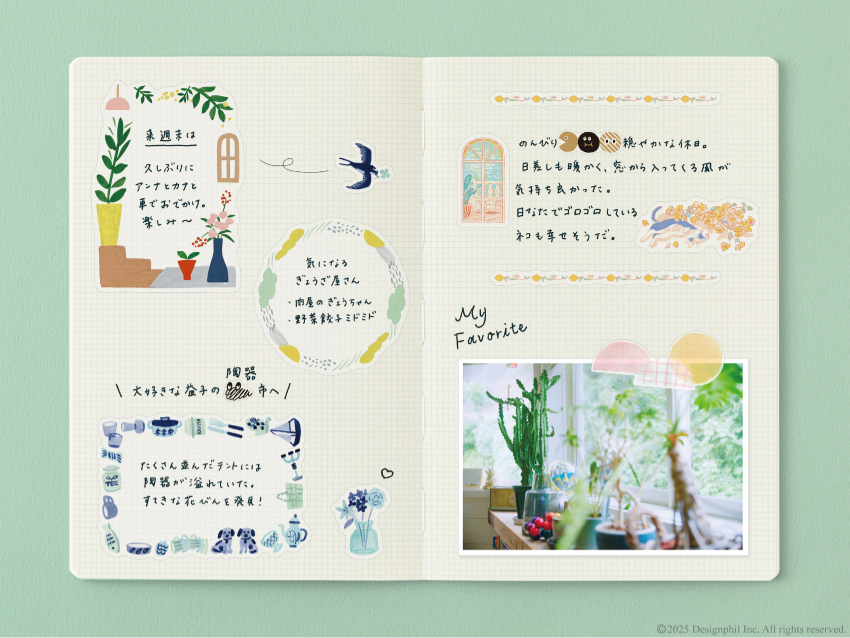 来週末は
久しぶりに
アンナとカナと
車でおでかけ。
楽しみ〜
気になる
ぎょうざ屋さん
・肉屋のぎょうちゃん
・野菜餃子ミドミド
陶器
\ 大好きな益子の 市へ /
たくさん並んだテントには
陶器が溢れていた。
すてきな花びんを発見!
のんびり 穏やかな休日。
日差しも暖かく、窓から入ってくる風が
気持ち良かった。
日なたでゴロゴロしている
ネコも幸せそうだ。
My
Favorite
©2025 Designphil Inc. All rights reserved.